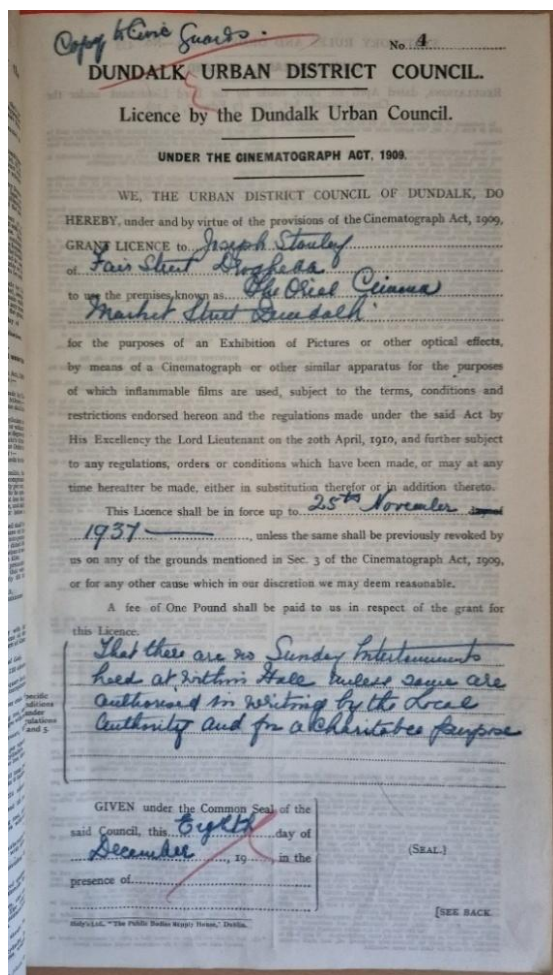 Copy to Civic Guards.
No. 4
DUNDALK URBAN DISTRICT COUNCIL.
Licence by the Dundalk Urban Council.
UNDER THE CINEMATOGRAPH ACT, 1909.
WE, THE URBAN DISTRICT COUNCIL OF DUNDALK, DO
HEREBY, under and by virtue of the provisions of the Cinematograph Act, 1909,
GRANT LICENCE to Joseph Stanley
of Fair Street Drogheda
to use the premises known as The Oriel Cinema
Market Street Dundalk
for the purposes of an Exhibition of Pictures or other optical effects,
by means of a Cinematograph or other similar apparatus for the purposes
of which inflammable films are used, subject to the terms, conditions and
restrictions endorsed hereon and the regulations made under the said Act by
His Excellency the Lord Lieutenant on the 20th April, 1910, and further subject
to any regulations, orders or conditions which have been made, or may at any
time hereafter be made, either in substitution therefor or in addition thereto.
This Licence shall be in force up to 25th November
1937, unless the same shall be previously revoked by
us on any of the grounds mentioned in Sec. 3 of the Cinematograph Act, 1909,
or for any other cause which in our discretion we may deem reasonable.
A fee of One Pound shall be paid to us in respect of the grant for
this Licence.
That there are no Sunday Entertainments
held at within Hall unless same are
authorised in writing by the Local
Authority and for a charitable purpose
GIVEN under the Common Seal of the
said Council, this Eighth day of
December, 19 in the
presence of
(SEAL.)
[SEE BACK
Healy's Ltd., "The Public Bodies Supply House," Dublin.